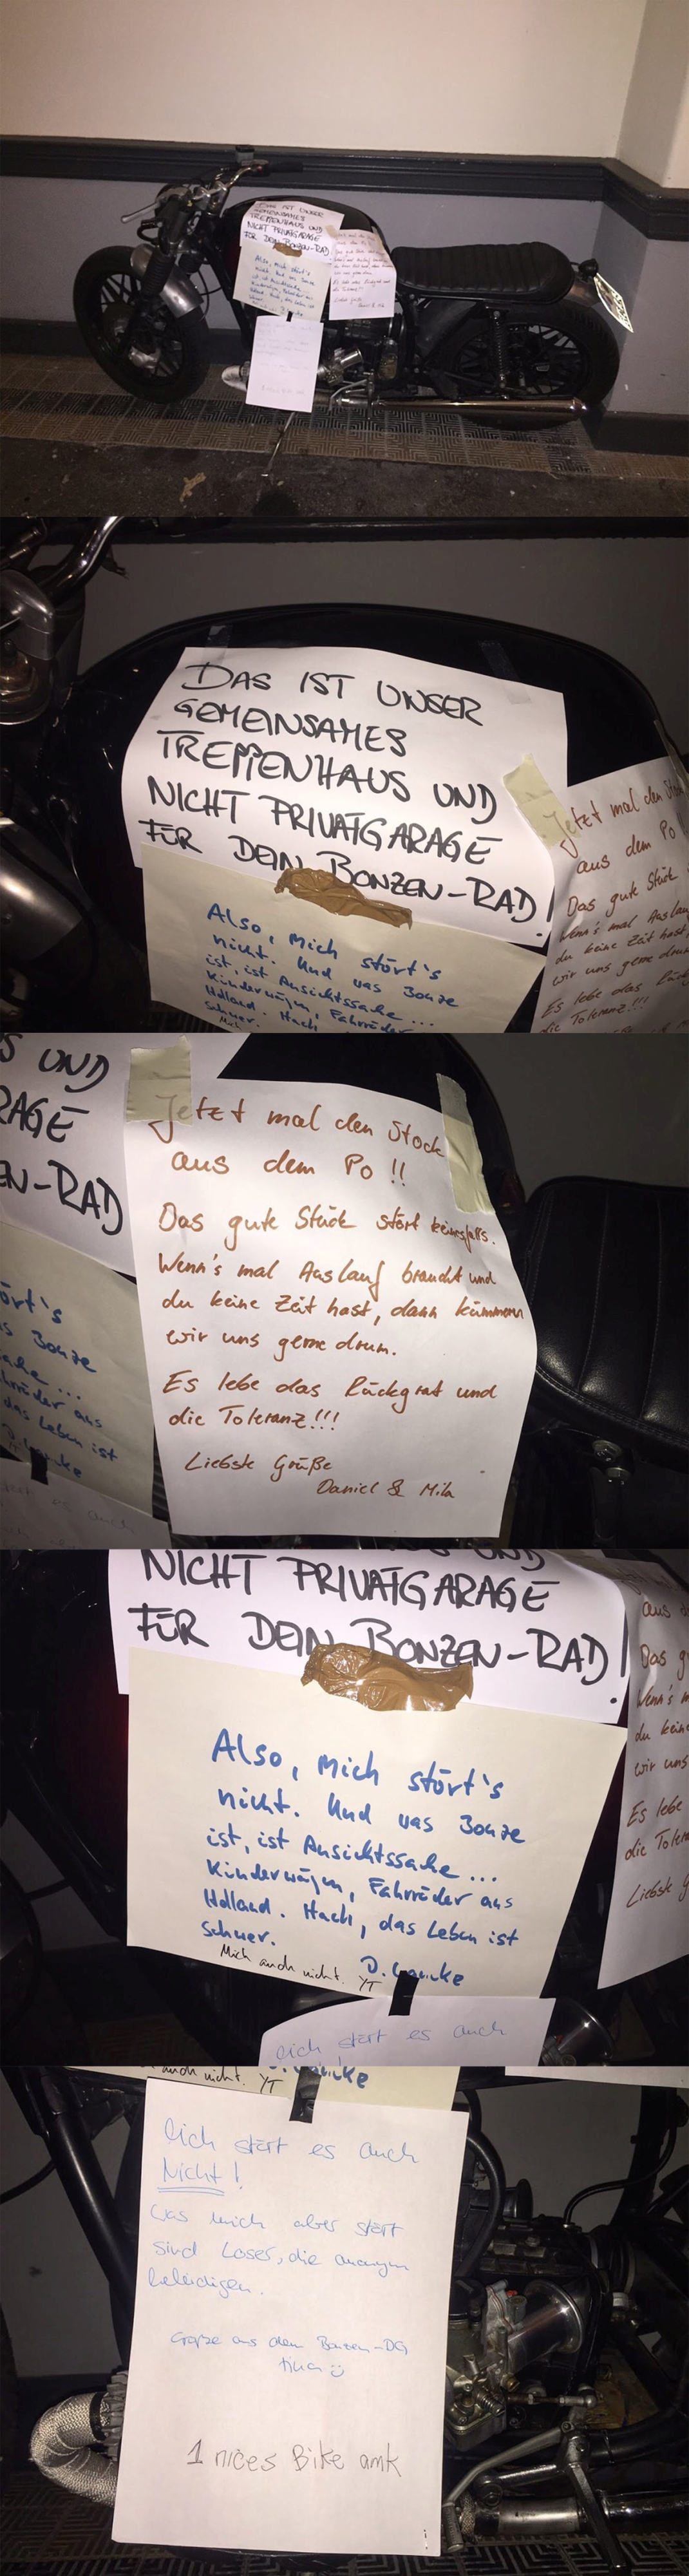 DAS IST UNSER
GEMEINSAMES
TREPPENHAUS UND
NICHT PRIVATGARAGE
FÜR DEIN BONZEN-RAD!
Jetzt mal den Stock
aus dem Po !!
Das gute Stück stört keinesfalls.
Wenn's mal Auslauf braucht und
du keine Zeit hast, dann kümmern
wir uns gerne drum.
Es lebe das Rückgrat und
die Toleranz!!!
Liebste Grüße
Daniel & Mila
Also, mich stört's
nicht. Und was Bonze
ist, ist Ansichtssache...
Kinderwägen, Fahrräder aus
Holland. Hach, das Leben ist
schwer.
Mich auch nicht. YT
Mich stört es auch
Nicht!
Was mich aber stört
sind Loser, die anonym
beleidigen.
Grüße aus dem Bonzen-DG
1 nices Bike amk